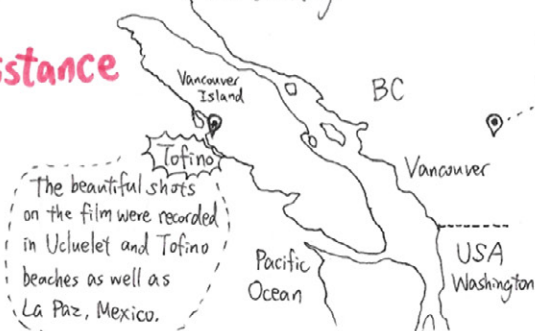 Vancouver
Island
BC
Tofino
Vancouver
The beautiful shots
on the film were recorded
in Ucluelet and Tofino
beaches as well as
La Paz, Mexico.
Pacific
Ocean
USA
Washington